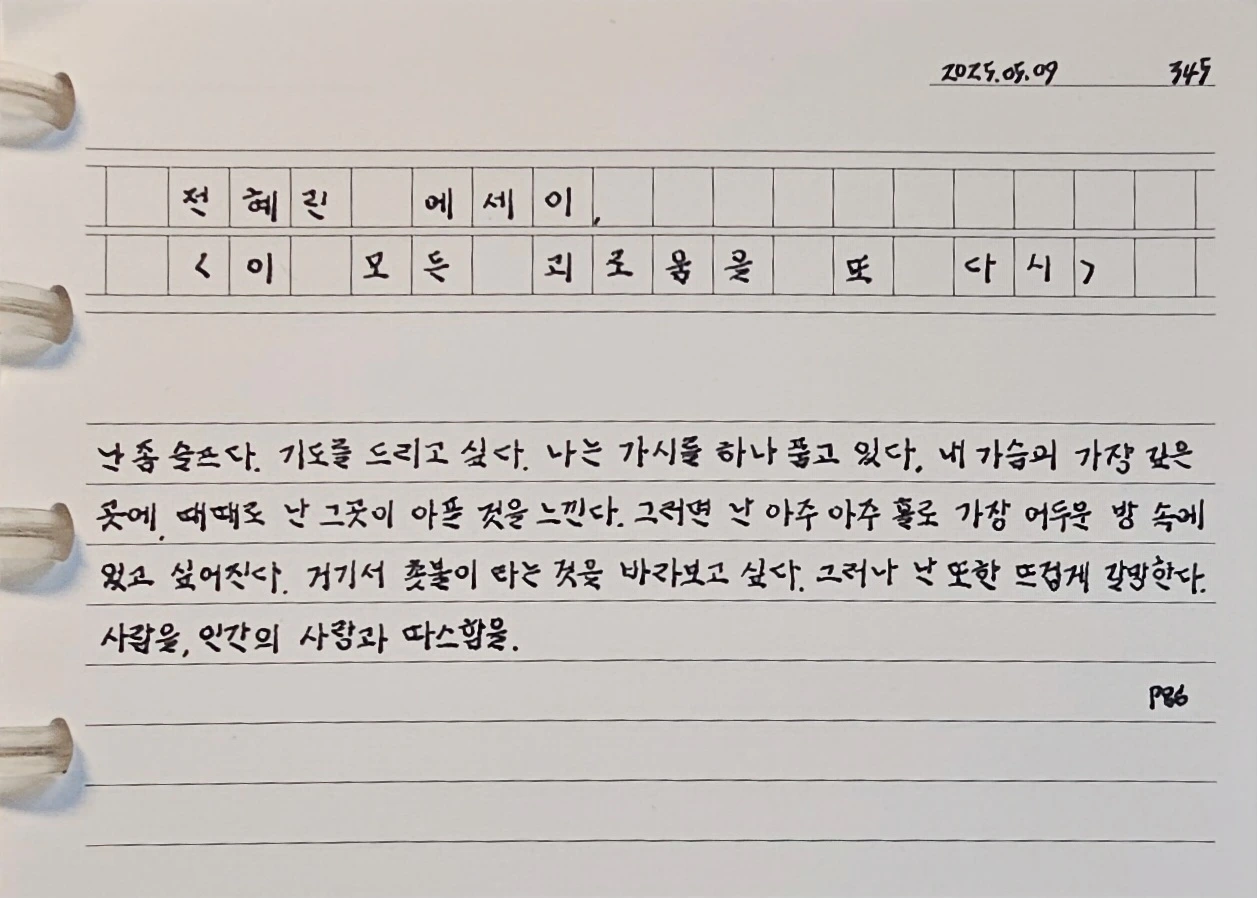 2025.05.09 345
전혜린 에세이,
<이 모든 괴로움을 또 다시>
난 좀 슬프다. 기도를 드리고 싶다. 나는 가시를 하나 품고 있다. 내 가슴의 가장 깊은
곳에. 때때로 난 그곳이 아픈 것을 느낀다. 그러면 난 아주 아주 홀로 가장 어두운 방 속에
있고 싶어진다. 거기서 촛불이 타는 것을 바라보고 싶다. 그러나 난 또한 뜨겁게 갈망한다.
사람을, 인간의 사랑과 따스함을.
P86